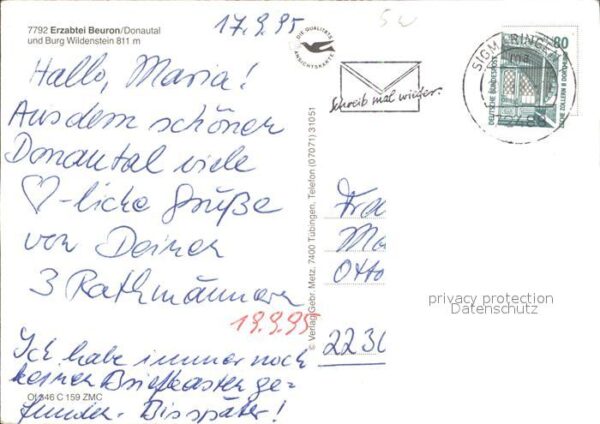 7792 Erzabtei Beuron/Donautal
und Burg Wildenstein 811 m
17.9.95
Hallo, Maria!
Aus dem schönen
Donautal viele
♡-liche Grüße
von Deinen
3 Rathmännern
19.9.95
Ich habe immer noch
keinen Briefkasten ge-
funden. Bis später!
Ol 346 C 159 ZMC
© Verlag Gebr. Metz, 7400 Tübingen, Telefon (07071) 31051
DIE QUALITÄTS
ANSICHTSKARTE
Schreib mal wieder.
SIGMARINGEN
80
DEUTSCHE BUNDESPOST
Fra
Ma
Otto
2230
privacy protection
Datenschutz